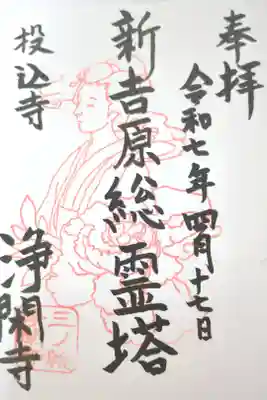 奉拝
令和七年四月十七日
新吉原総霊塔
投込寺
浄閑寺